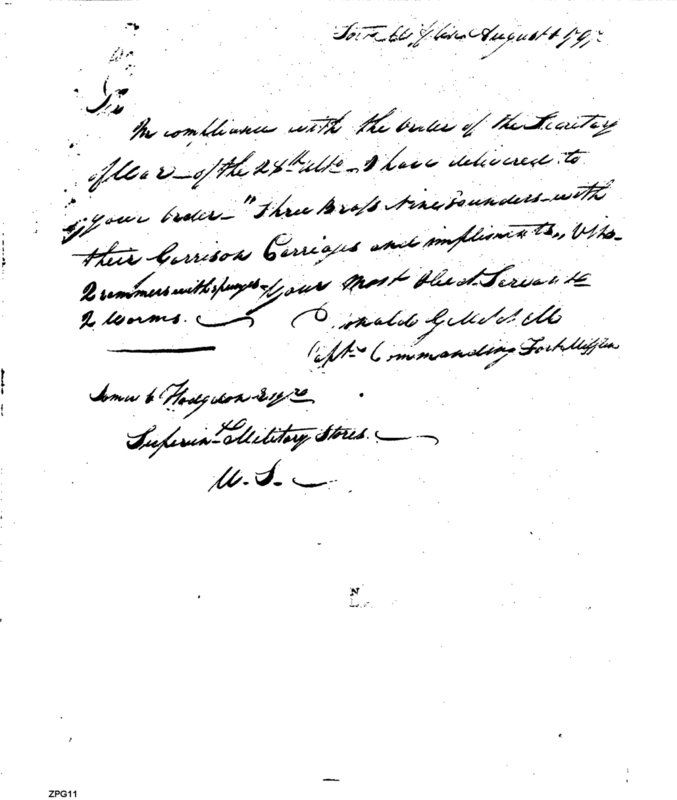 Fort Mifflin August 179
Sir
In compliance with the Order of the Secretary
of War _ of the 28th Ulto _ I have delivered to
your Order _ "Three Brass Nine Pounders _ with
their Garrison Carriages and impliments,, Viz.
2 rammers with spunges _ Your Most Obedt Servant
2 Worms.
Donald G Mitchell
Capt Commanding Fort Mifflin
Samuel Hodgdon Esqre
Superint Military Stores.
U. S.
N
ZPG11